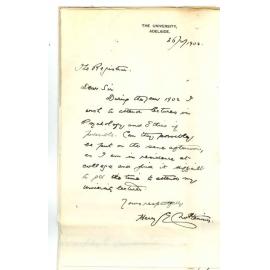 THE UNIVERSITY,
ADELAIDE.
1902.
The Registrar.
Dear Sir
During the year 1902 I
wish to attend lectures in
Psychology and Ethics if
possible. Can they possibly
be put on the same afternoon,
as I am in residence at
college and find it difficult
to get the time to attend my
university lectures
Yours respectfully
Henry E.